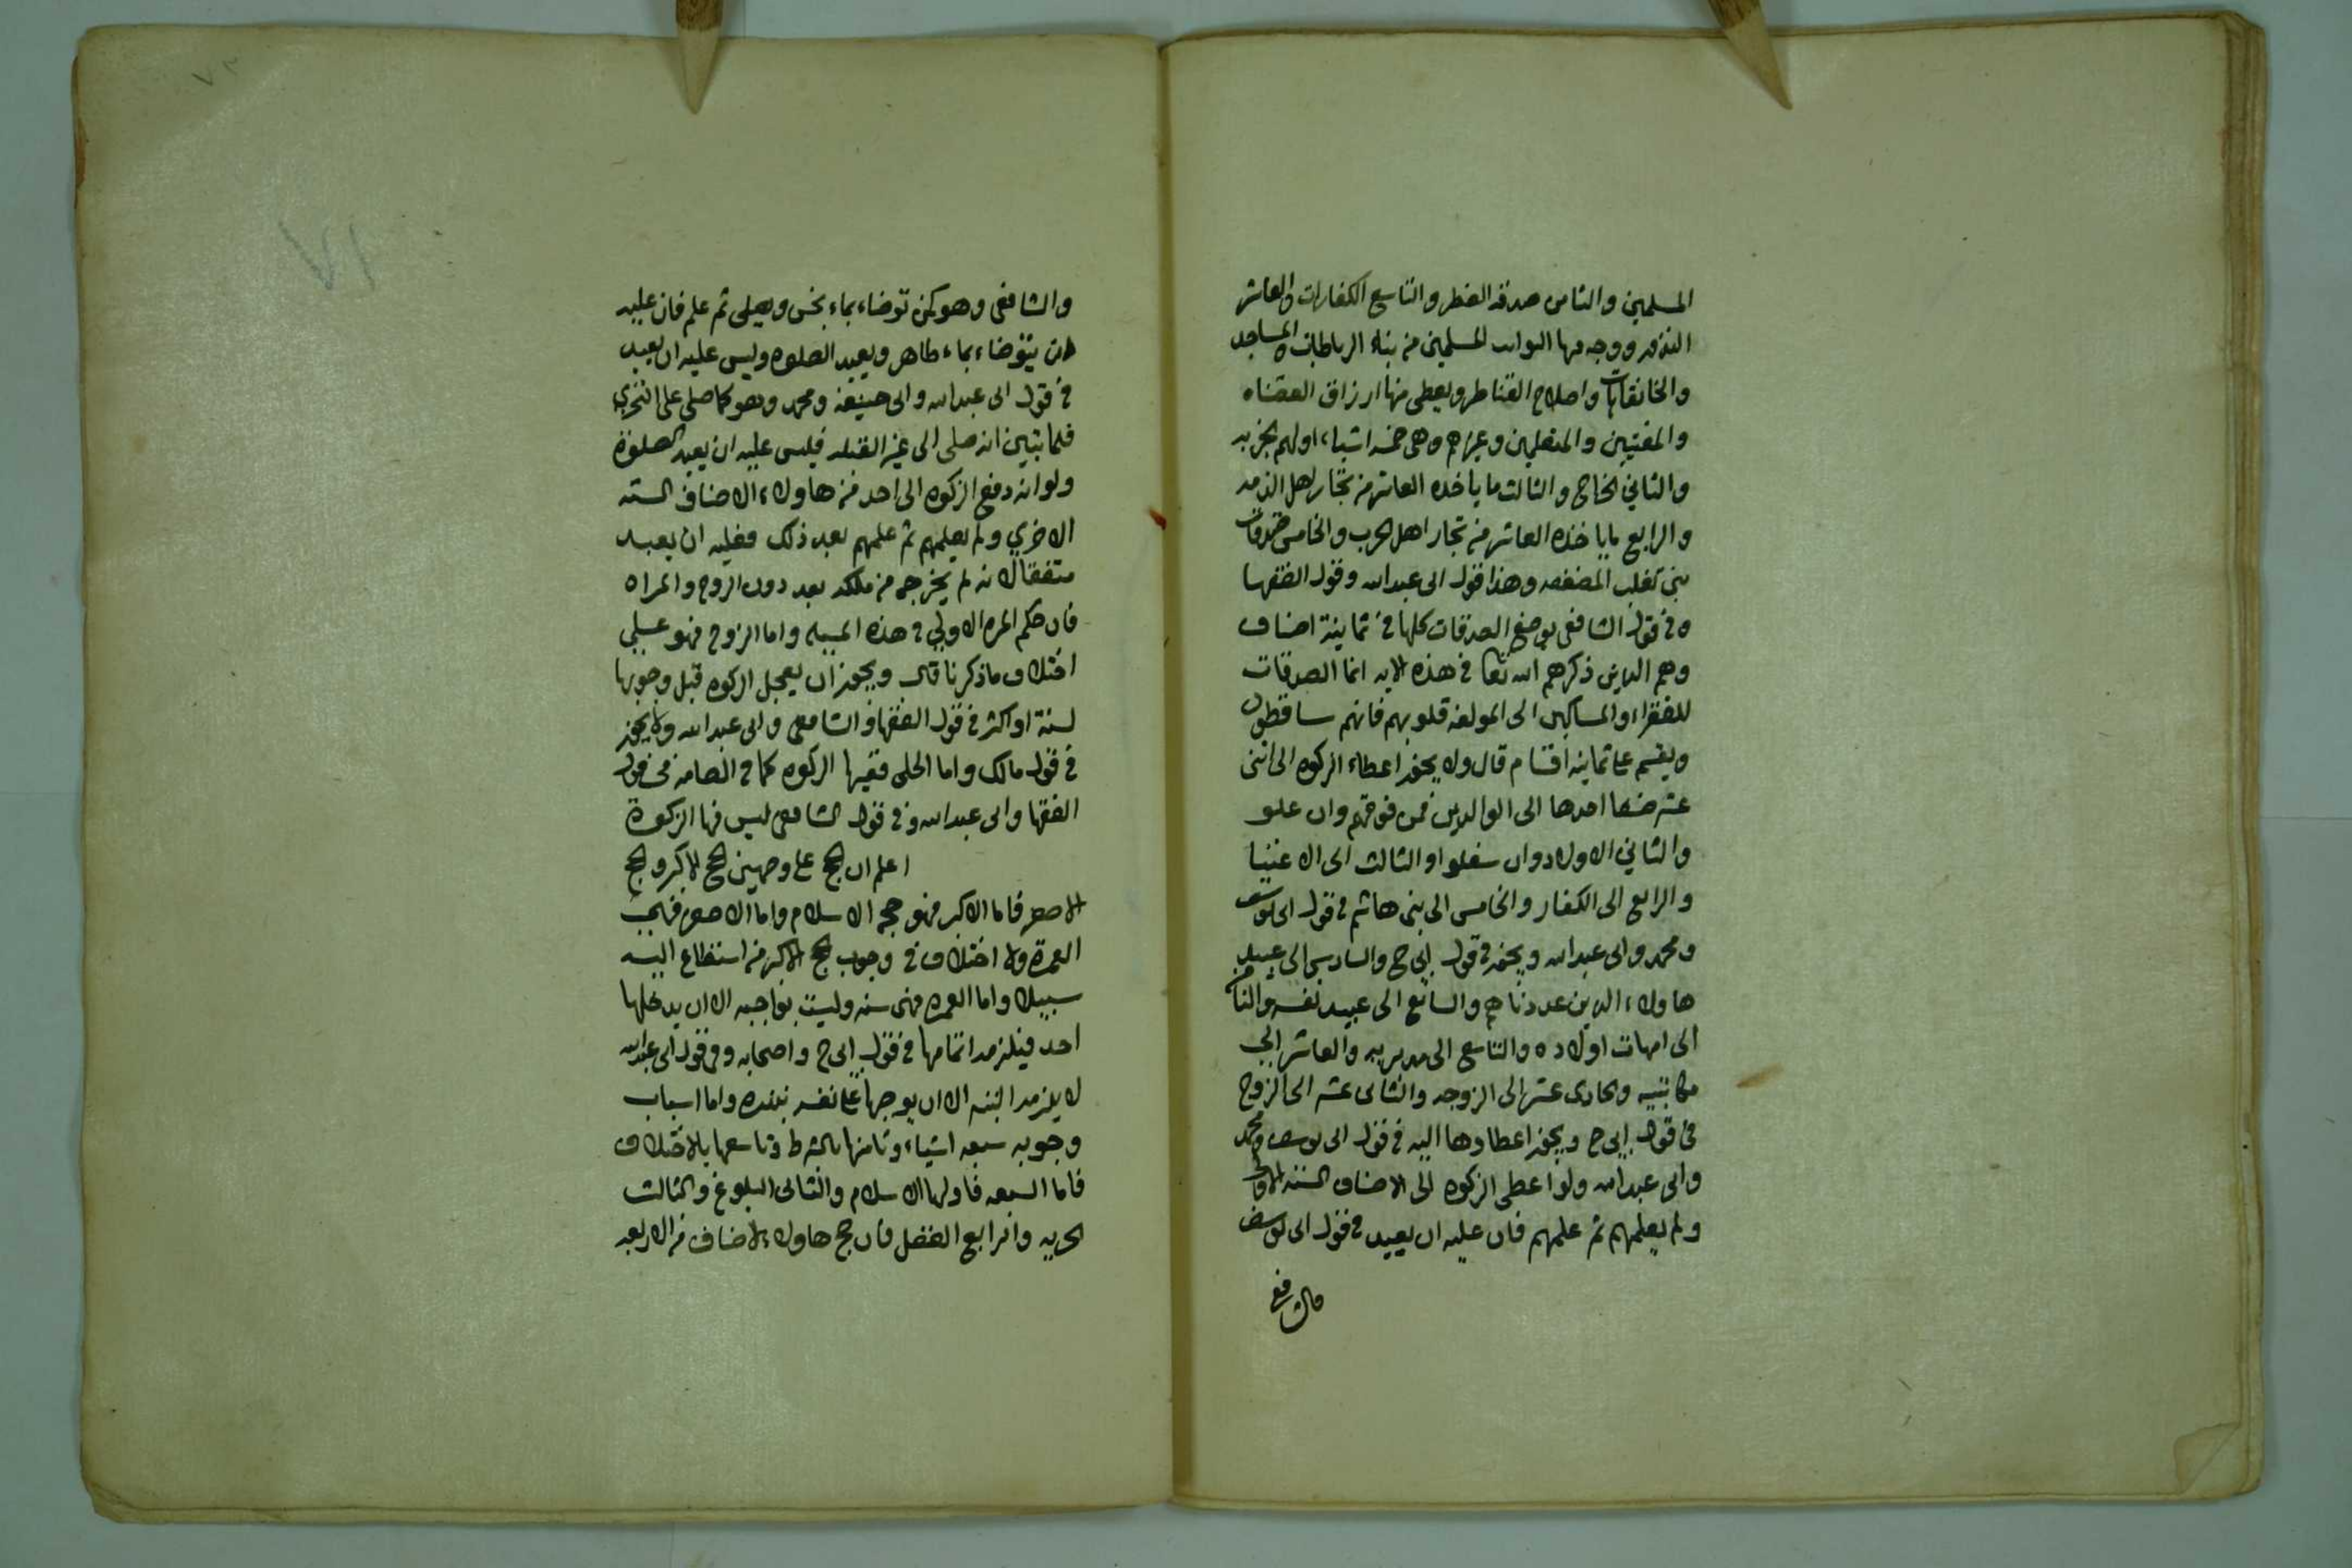 المسلمين والثامن صدقه الفطر والتاسع الكفارات والعاشر
النذور ووجه منها النوايب للمسلمين من بناء الرباطات والمساجد
والخانقاهات واصلاح القناطر ويعطى منها ارزاق القضاه
والمفتيين والمتعلمين وغيرهم وهى خمسه اشياء اولهم الجزيه
والثاني الخراج والثالث ما ياخذه العاشر من تجار اهل الذمه
والرابع ما ياخذه العاشر من تجار اهل الحرب والخامس صدقات
بنى تغلب المضعفه وهذا قول ابى عبد الله وقول الفقها
وفى قول الشافعى يوضع الصدقات كلها في ثمانية اصناف
وهم الذين ذكرهم الله تعا في هذه الايه انما الصدقات
للفقراء والمساكين الى المولفه قلوبهم فانهم ساقطون
ويقسم على ثمانيه اقسام قال ولا يجوز اعطاء الزكوه الى اثنى
عشر صنفا احدها الى الوالدين فمن فوقهم وان علو
والثاني الاولاد وان سفلوا والثالث الى الاغنيا
والرابع الى الكفار والخامس الى بنى هاشم في قول ابى يوسف
ومحمد وابى عبد الله ويجوز في قول ابى ح والسادس الى عبيد
هاولاء الذين عددناهم والسابع الى عبيد نفسه والثامن
الى امهات اولاده والتاسع الى مدبريه والعاشر الى
مكاتبيه والحادى عشر الى الزوجه والثانى عشر الى الزوج
فى قول ابى ح ويجوز اعطاوها اليه في قول ابى يوسف ومحمد
وابى عبد الله ولو اعطى الزكوه الى الاصناف الستة الاولى
ولم يعلمهم ثم علمهم فان عليه ان يعيد في قول ابى يوسف
والشافعى
والشافعى وهو كمن توضاء بماء نجس وصلى ثم علم فان عليه
ان يتوضاء بماء طاهر ويعيد الصلوه وليس عليه ان يعيد
في قول ابى عبد الله وابى حنيفة ومحمد وهو كما صلى على التحري
فلما تبين انه صلى الى غير القبله فليس عليه ان يعيد الصلوة
ولو انه دفع الزكوه الى احد من هاولاء الاصناف السته
الاخري ولم يعلمهم ثم علمهم بعد ذلك فعليه ان يعيد
متفقا لانه لم يخرجه من ملكه بعد دون الزوج والمراه
فان حكم المره الاولي في هذه المسيله واما الزوج فهو على
اختلاف ما ذكرنا قال ويجوز ان يعجل الزكوه قبل وجوبها
لسنة او اكثر في قول الفقها والشافعى وابى عبد الله ولا يجوز
في قول مالك واما الحلى ففيها الزكوه كما في الصامة فى قول
الفقها وابى عبد الله وفي قول الشافعى ليس فيها الزكوة
اعلم ان الحج على وجهين الحج الاكبر والحج
الاصغر فاما الاكبر فهو حجه الاسلام واما الاصغر فهى
العمرة ولا اختلاف في وجوب الحج الاكبر من استطاع اليه
سبيلا واما العمره فهى سنه وليست بواجبه الا ان يدخلها
احد فيلزمه اتمامها في قول ابى ح واصحابه وفى قول ابى عبد الله
لا يلزمه البته الا ان يوجبها على نفسه بنذره واما اسباب
وجوبه سبعه اشياء وثامنها بالشرط وتاسعها بالاختلاف
فاما السبعه فاولها الاسلام والثانى البلوغ والثالث
الحريه والرابع العقل فان حج هاولاء الاصناف من الاربعه